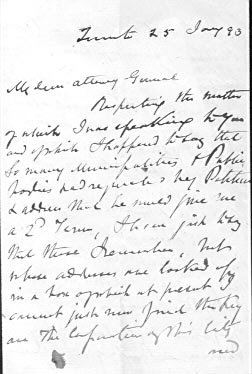 Toronto 25 Jany 93
My dear Attorney General
Respecting the matter
of which I was speaking to you
and of which I happened to say that
so many Municipalities & Public
bodies had requested by Petition
& address that he would give me
a 2d Term, I have just to say
that those I remember, but
whose addresses are locked up
in a box of which at present I
cannot just now find the key
are The Corporation of this City